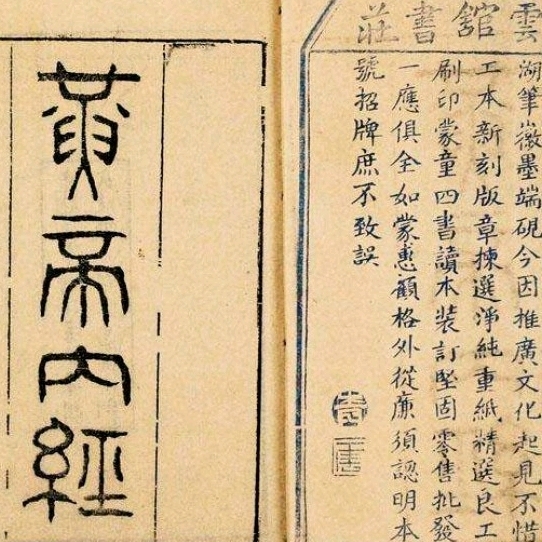 雲舘書莊
湖筆徽墨端硯今因推廣文化起見不惜
工本新刻版章揀選淨純重紙精選良工
刷印蒙童四書讀本裝訂堅固零售批發
一應俱全如蒙惠顧格外從廉須認明本
號招牌庶不致誤
黃帝內經